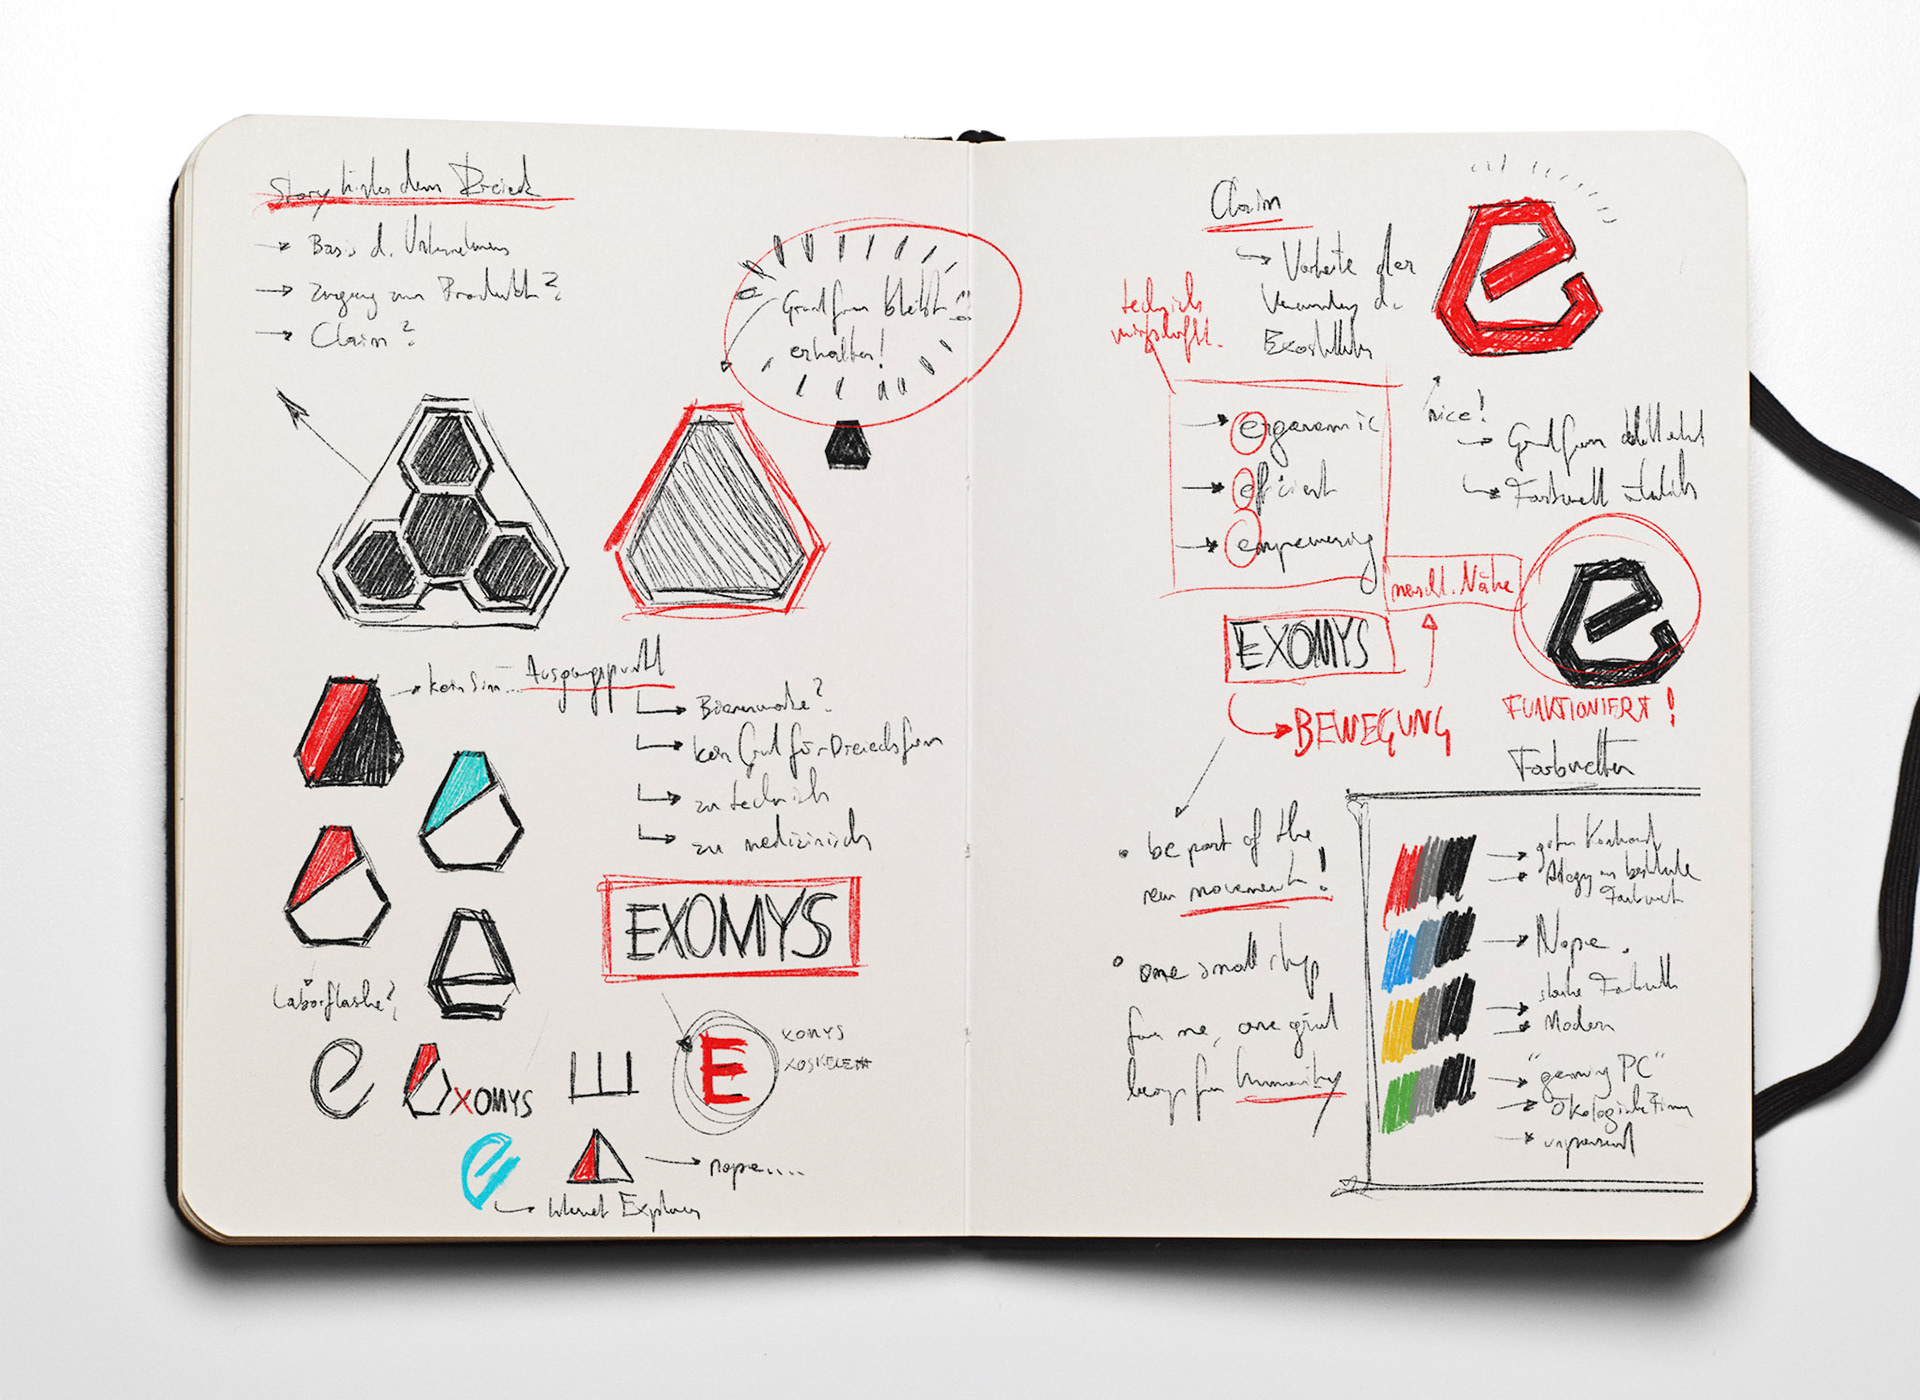 Story hinter dem Dreieck
Basis d. Unternehmens
Zugang zum Produkt?
Claim?
Grundform bleibt
erhalten!
kein Sinn... Ausgangspunkt
Bienenwabe?
kein Grund für Dreiecksform
zu technisch
zu medizinisch
EXOMYS
Laborflasche?
e
XOMYS
E
E
XOMYS
XOSKELETT
e
nope....
Internet Explorer
Claim
Vorteile der
d.
Exoskelette
e
technisch
nice!
Grundform
Farbwelt
ergonomic
efficient
empowering
menschl. Nähe
e
EXOMYS
BEWEGUNG
FUNKTIONIERT!
Farbwelten
be part of the
new movement!
one small step
for me, one giant
leap for humanity
guter Kontrast
Farbwelt
Nope.
starke Farbwelt
Modern
"gaming PC"
Ökologische Firma
unpassend